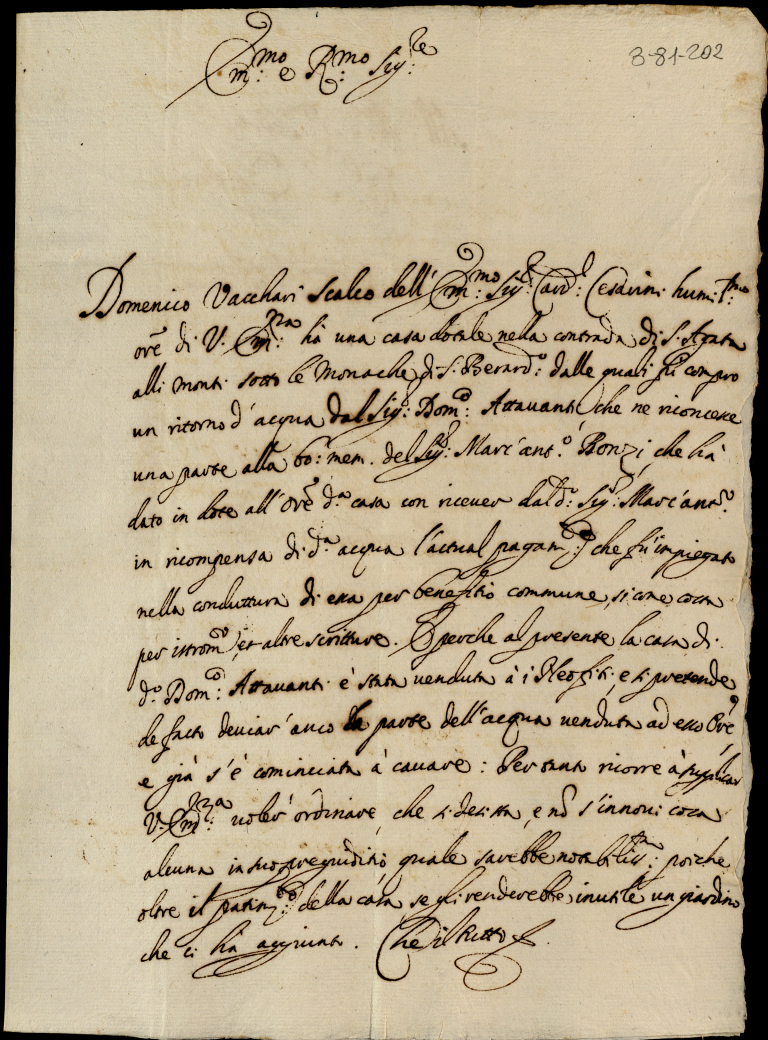 8-81-202
Em.mo e R.mo Sig.re
Domenico Vacchari scalco dell'Em.mo Sig.r Card.l Cesarini humil.mo
ore di V. Em.za hà una casa dotale nella contrada di S. Agata
alli monti sotto le Monache di S. Berard.o dalle quali fù compro
un ritorno d'acqua dal Sig.r Dom.co Attavanti, che ne riconcesse
una parte alla bo: mem. del Sig.r Marc'ant.o Bonzi, che hà
dato in dote all'Ore d.a casa con ricever dal d.o Sig.r Marc'ant.o
in ricompensa di d.a acqua l'actual pagam.to che fù impiegato
nella conduttura di essa per benefitio commune, si come costa
per istrom.to et altre scritture. E perche al presente la casa di
d.o Dom.co Attavanti è stata venduta à i e si pretende
de facto deviar' anco la parte dell'acqua venduta ad esso Ore
e già s'è cominciata à cavare: Per tanto ricorre à supplicar
V. Em.za voler' ordinare, che si desista, e nō s'innovi cosa
alcuna in suo pregiuditio quale sarebbe notabiliss.mo poiche
oltre il patim.to della casa se gli renderebbe inutile un giardino
che ci hà aggiunto. Che il tutto &.